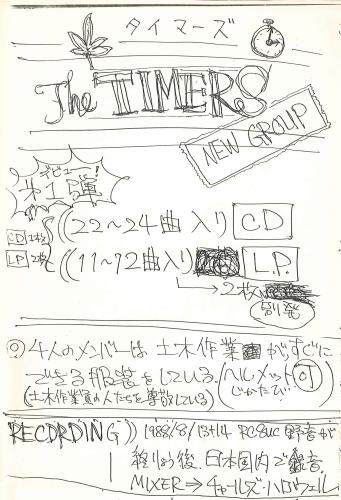 タイマーズ
The TIMERS
NEW GROUP
デビュー!
才1弾
CD 1枚 ((22〜24曲入り CD
LP 2枚 ((11〜12曲入り L.P.
→2枚
別発
◎4人のメンバーは土木作業がすぐに
できる服装をしている。(ヘルメット
(土木作業員の人たちを尊敬している)
じかたび OJ
RECORDING)) 1988/8/13+14 RC SUC 野音が
終りょう後、日本国内で録音。
MIXER→チャールズ・ハロウェル